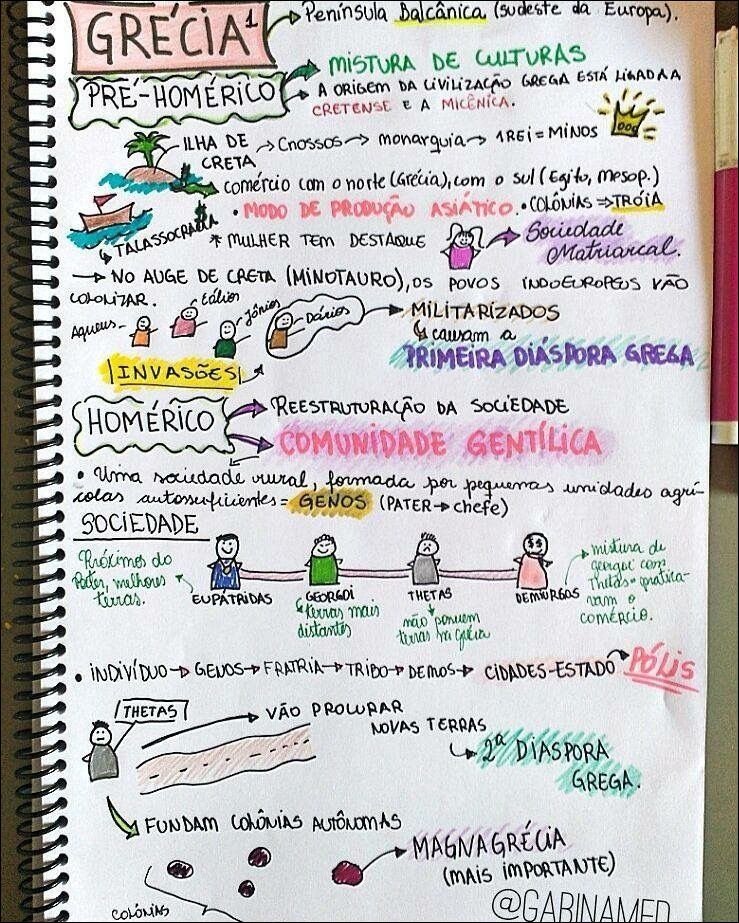 GRÉCIA¹ Península Balcânica (sudeste da Europa).
MISTURA DE CULTURAS
PRÉ-HOMÉRICO A ORIGEM DA CIVILIZAÇÃO GREGA ESTÁ LIGADA A
CRETENSE E A MICÊNICA.
ILHA DE CRETA → Cnossos → monarquia → 1 REI = MINOS
comércio com o norte (Grécia), com o sul (Egito, mesop.)
• MODO DE PRODUÇÃO ASIÁTICO. • COLÔNIAS ⇒ TRÓIA
TALASSOCRACIA * MULHER TEM DESTAQUE Sociedade
Matriarcal.
→ NO AUGE DE CRETA (MINOTAURO), OS POVOS INDOEUROPEUS VÃO
COLONIZAR.
Aqueus Eólios Jônios Dórios → MILITARIZADOS
↳ causam a
PRIMEIRA DIÁSPORA GREGA
INVASÕES
HOMÉRICO REESTRUTURAÇÃO DA SOCIEDADE
COMUNIDADE GENTÍLICA
• Uma sociedade rural, formada por pequenas unidades agrí-
colas autossuficientes = GENOS (PATER → chefe)
SOCIEDADE
Próximos do
Poder, melhores
terras.
EUPÁTRIDAS
GEORGOI
↳ terras mais
distantes
THETAS
não possuem
terras na grécia
DEMIURGOS
mistura de
georgoi com
Thetas = pratica-
vam o
comércio.
• INDIVÍDUO → GENOS → FRATRIA → TRIBO → DEMOS → CIDADES-ESTADO PÓLIS
THETAS VÃO PROCURAR
NOVAS TERRAS
↳ 2ª DIÁSPORA
GREGA.
FUNDAM COLÔNIAS AUTÔNOMAS
MAGNA GRÉCIA
(MAIS IMPORTANTE)
COLÔNIAS
@GABINAMED